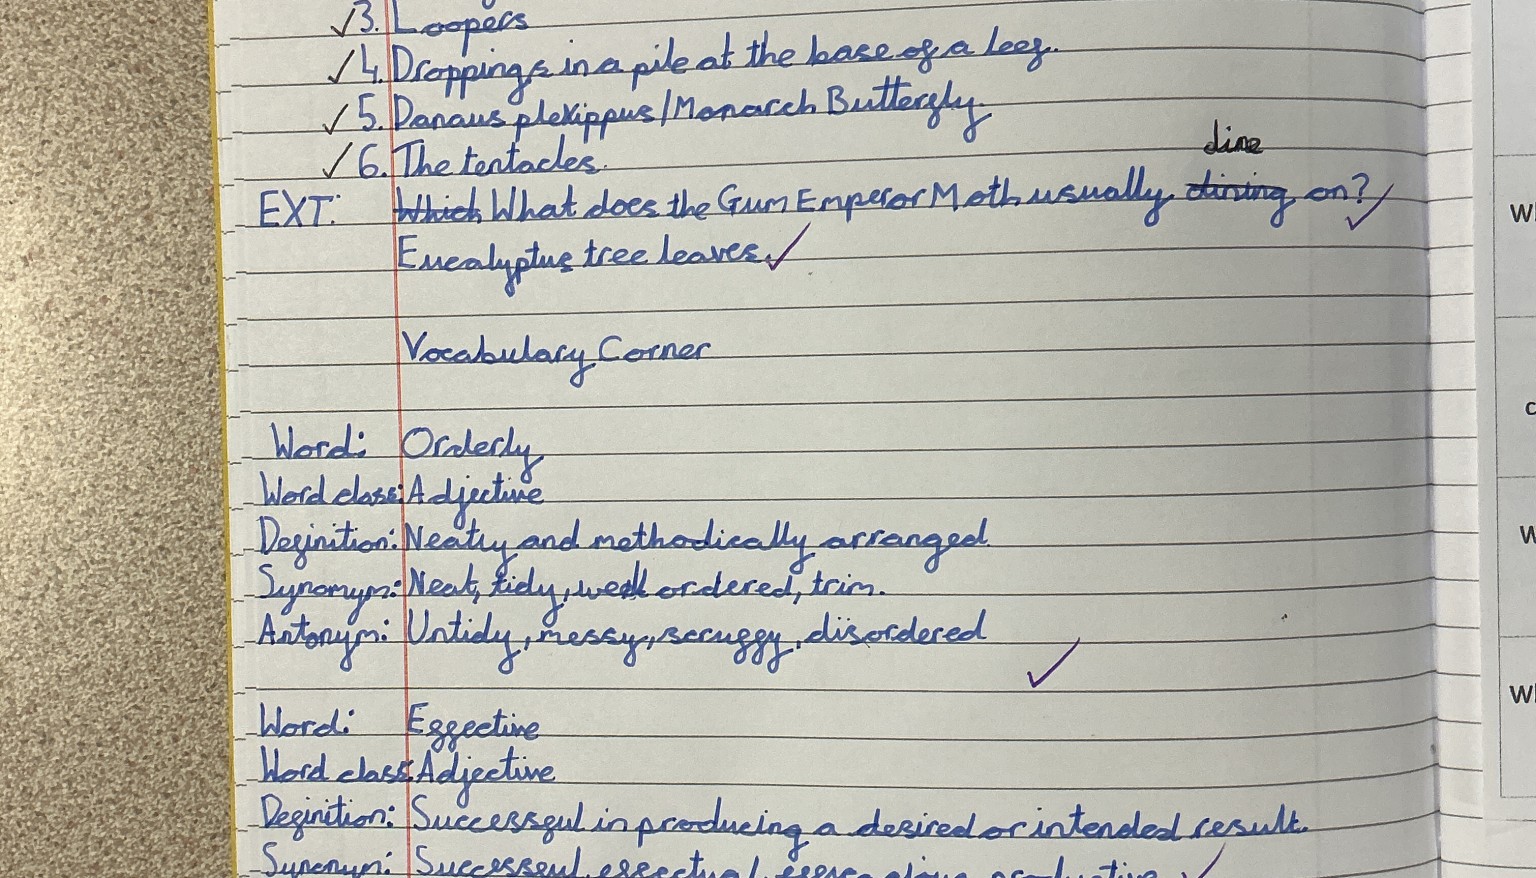 3. Loopers
4. Droppings in a pile at the base of a leef.
5. Danaus plexippus/Monarch Butterfly.
6. The tentacles.
dine
EXT: Which What does the Gum Emperor Moth usually dining on?
Eucalyptus tree leaves.
Vocabulary Corner
Word: Orderly
Word class: Adjective
Definition: Neatly and methodically arranged.
Synomym: Neat, tidy, well ordered, trim.
Antonym: Untidy, messy, scruffy, disordered
Word: Effective
Word class: Adjective
Definition: Successful in producing a desired or intended result.
Synonym: Successful, effectual,